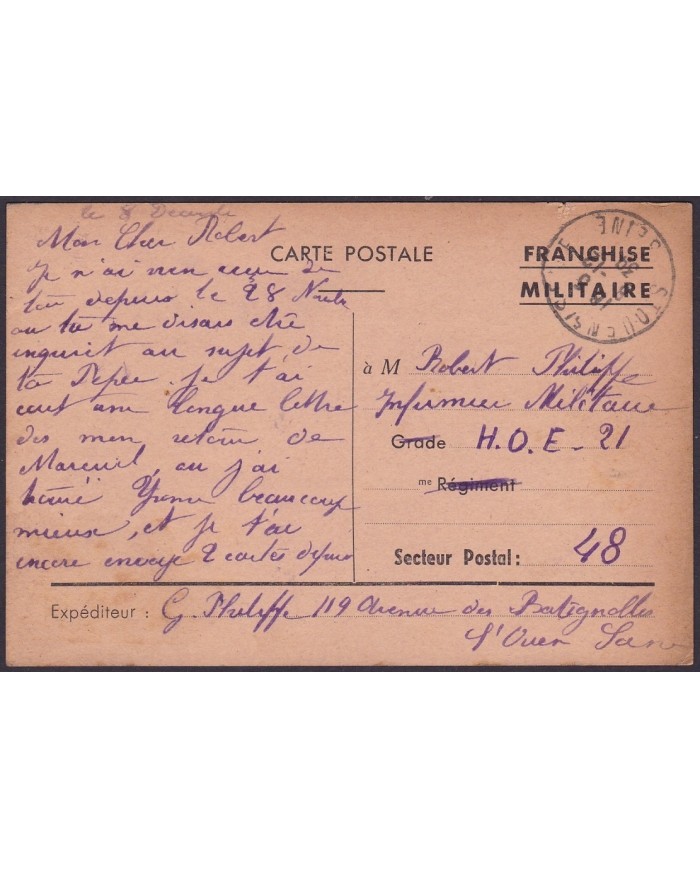 le 8 Decembre
Mon Cher Robert
Je n'ai rien reçu de
toi depuis le 28 Nvbre
ou tu me disais etre
inquiet au sujet de
ta Pepee. Je t'ai
ecrit une longue lettre
des mon retour de
Mareuil, ou j'ai
trouvé Yvonne beaucoup
mieux, et je t'ai
encore envoye 2 cartes depuis
CARTE POSTALE
FRANCHISE
MILITAIRE
ST OUEN S/SEINE
SEINE
à M Robert Philippe
Infirmier Militaire
Grade H.O.E-21
me Régiment
Secteur Postal: 48
Expéditeur : G. Philippe 119 Avenue des Batignolles
St Ouen Seine